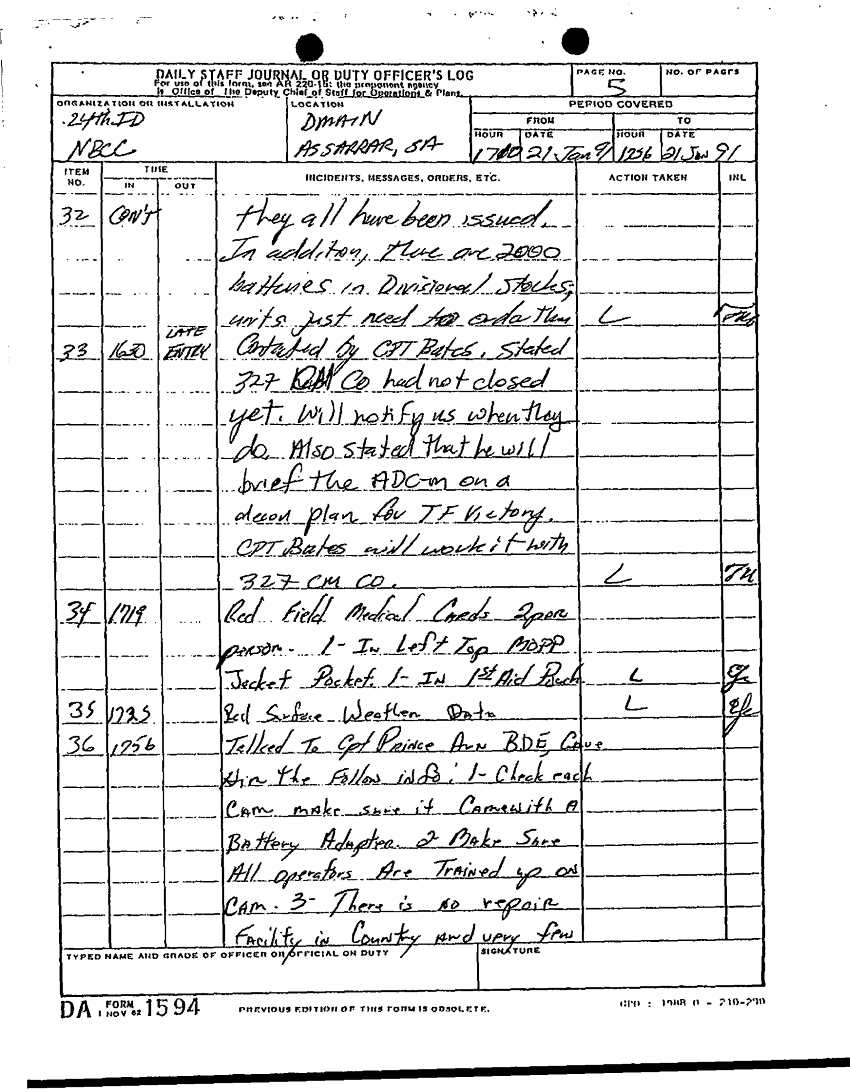 DAILY STAFF JOURNAL OR DUTY OFFICER'S LOG
For use of this form, see AR 220-15; the proponent agency
is Office of The Deputy Chief of Staff for Operations & Plans.
PAGE NO.
5
NO. OF PAGES
ORGANIZATION OR INSTALLATION
24th ID
NBCC
LOCATION
DMAIN
ASSARRAR, SA
PERIOD COVERED
FROM
TO
HOUR DATE HOUR DATE
1700 21 Jan 91 1256 21 Jan 91
ITEM NO.
TIME
IN OUT
INCIDENTS, MESSAGES, ORDERS, ETC.
ACTION TAKEN
INL
32 CON'T they all have been issued.
In addition, there are 2000
batteries in Divisional Stocks;
units just need to order them L
33 1630 LATE ENTRY Contacted by CPT Bates. Stated
327 CM Co had not closed
yet. Will notify us when they
do. Also stated that he will
brief the ADC-m on a
decon plan for TF Victory.
CPT Bates will work it with
327 CM CO. L
34 1719 Red Field Medical Cards 2 per
person. 1- In Left Top MOPP
Jacket Pocket. 1- IN 1st Aid Pouch L
35 1725 Red Surface Weather Data L
36 1756 Talked To Cpt Prince Avn BDE, Gave
him the Follow info: 1- Check each
CAM make sure it Came with A
Battery Adapter. 2 Make Sure
All operators Are Trained up on
CAM. 3- There is no repair
Facility in Country and very few
TYPED NAME AND GRADE OF OFFICER OR OFFICIAL ON DUTY
SIGNATURE
DA FORM 1 NOV 62 1594
PREVIOUS EDITION OF THIS FORM IS OBSOLETE.
GPO : 1988 O - 210-290